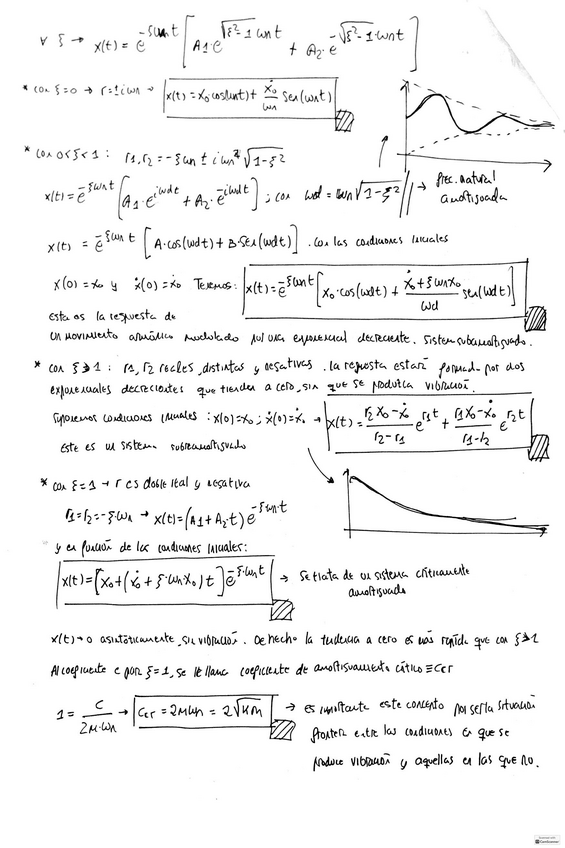 ∀ ξ → x(t) = e^(-ξωnt) [A1·e^(√(ξ²-1)·ωnt) + A2·e^(-√(ξ²-1)·ωnt)]
* con ξ=0 → r=±iωn → x(t) = x0 cos(ωnt) + ẋ0/ωn sen(ωnt)
* con 0<ξ<1 : r1,r2 = -ξωn ± iωn √(1-ξ²)
x(t) = e^(-ξωnt) [A1·e^(iωdt) + A2·e^(-iωdt)] ; con ωd = ωn √(1-ξ²) → frec. natural
amortiguada
x(t) = e^(-ξωnt) [A·cos(ωdt) + B·sen(ωdt)] . con las condiciones iniciales
x(0)=x0 y ẋ(0)=ẋ0 Tenemos: x(t) = e^(-ξωnt) [x0·cos(ωdt) + (ẋ0+ξωnx0)/ωd sen(ωdt)]
Esta es la respuesta de
un movimiento armónico modulado por una exponencial decreciente. Sistema subamortiguado.
* con ξ>1 : r1,r2 reales, distintas y negativas. La respuesta estará formada por dos
exponenciales decrecientes que tienden a cero, sin que se produzca vibración.
Suponemos condiciones iniciales : x(0)=x0 ; ẋ(0)=ẋ0 → x(t) = (r2x0-ẋ0)/(r2-r1) e^(r1t) + (r1x0-ẋ0)/(r1-r2) e^(r2t)
Este es un sistema sobreamortiguado
* con ξ=1 → r es doble real y negativa
r1=r2=-ξ·ωn → x(t) = (A1+A2t) e^(-ξωn·t)
y en función de las condiciones iniciales:
x(t) = [x0+(ẋ0+ξ·ωnx0)t] e^(-ξ·ωnt) → Se trata de un sistema críticamente
amortiguado
x(t)→0 asintóticamente, sin vibración. De hecho la tendencia a cero es más rápida que con ξ>1
Al coeficiente c por ξ=1, se le llama coeficiente de amortiguamiento crítico ≡ Ccr
1 = C/(2m·ωn) → Ccr = 2mωn = 2√(km) → es importante este concepto por ser la situación
frontera entre las condiciones en que se
produce vibración y aquellas en las que no.
CamScanner